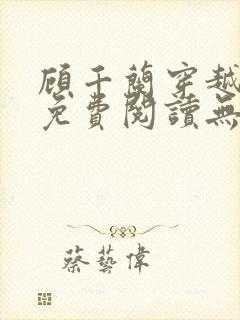 顾千蘭穿越
免費閱讀無
蔡藝偉